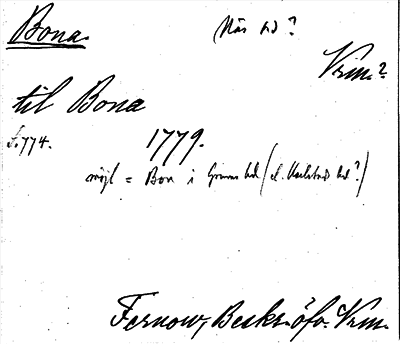 Bona. Näs hd?
Vrm.?
til Bona
s. 774. 1779.
möjl = Bon i Grums hd (el. Karlstads hd?)
Fernow, Beskr. öfv. Vrm.